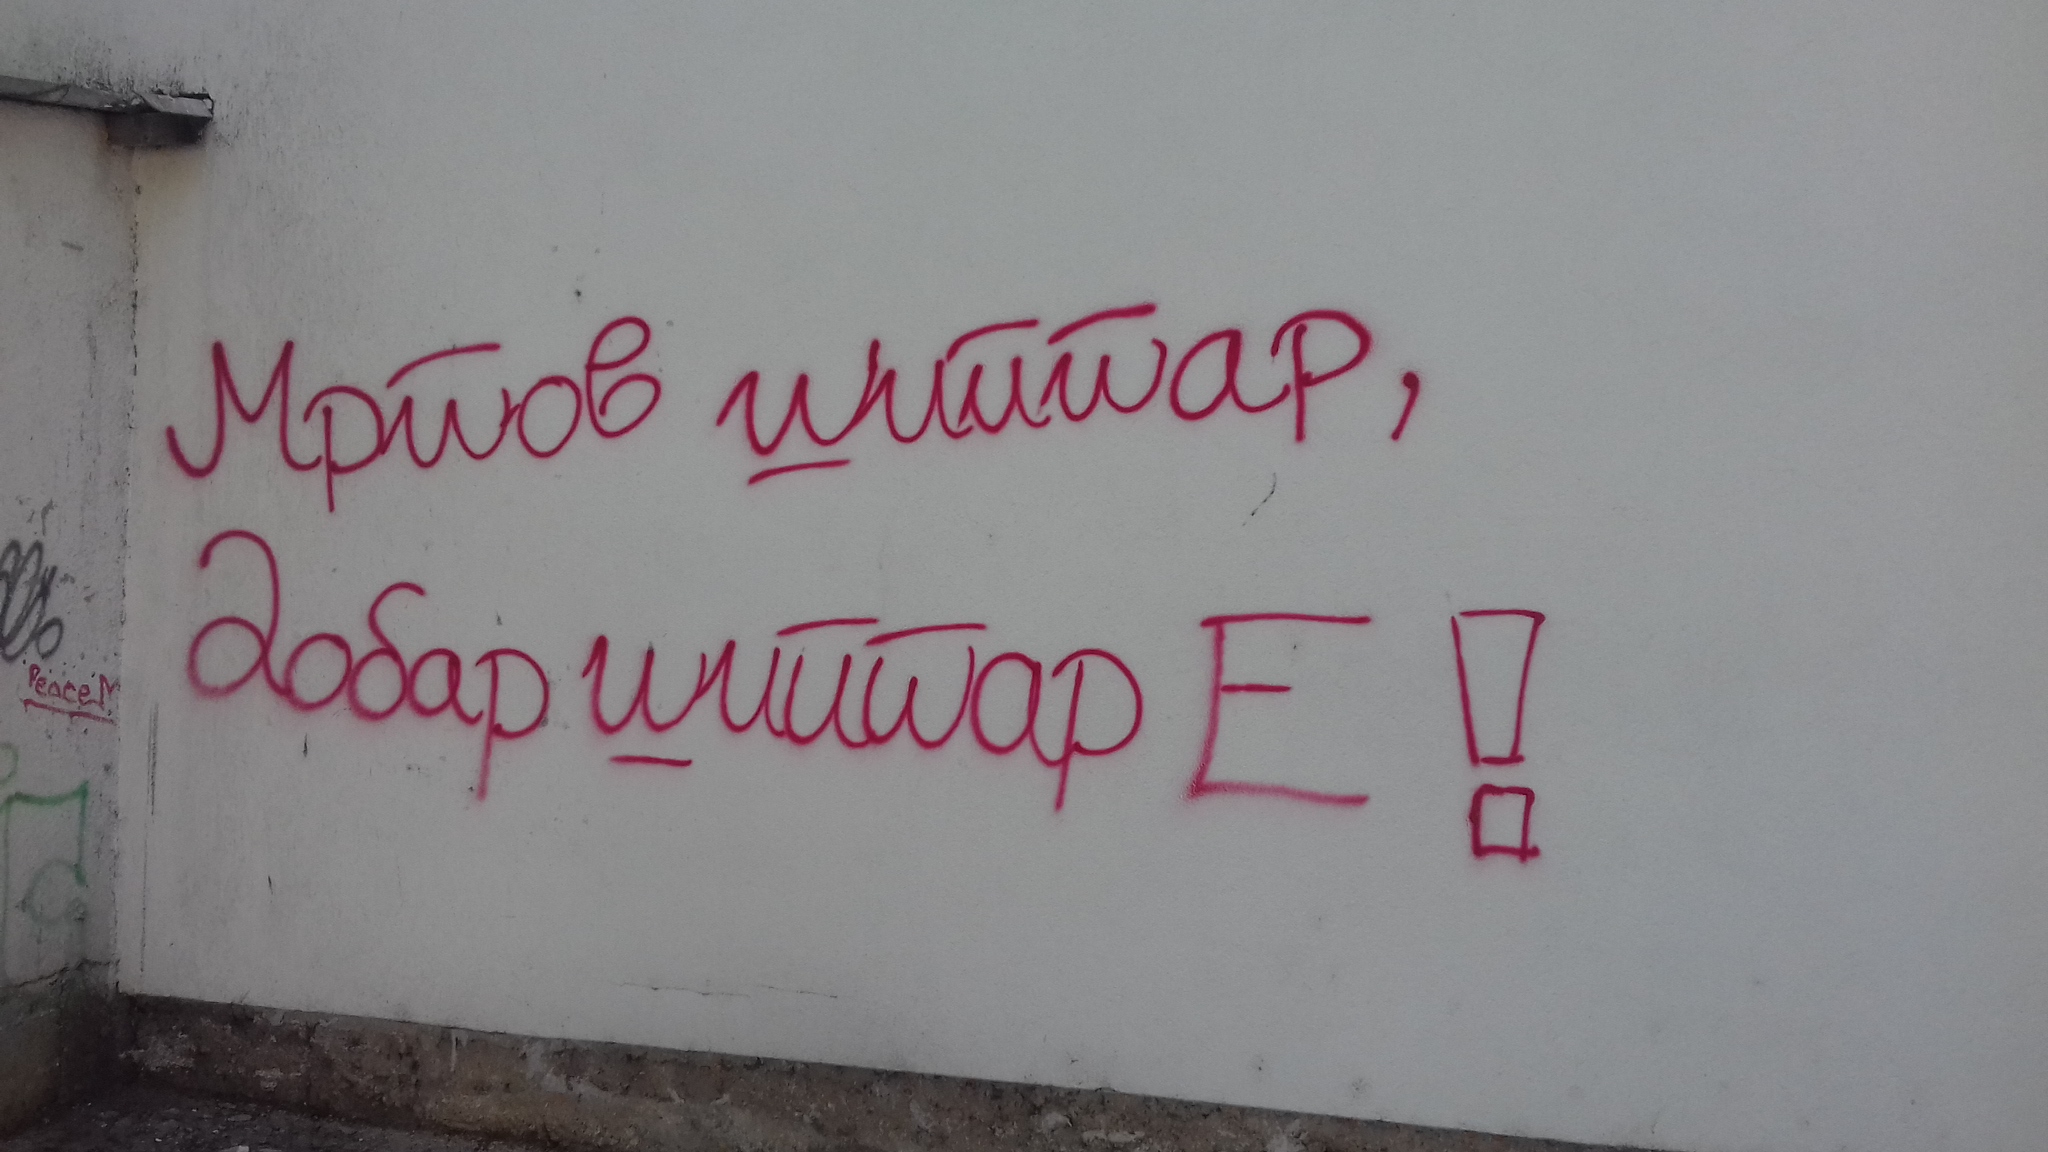 Мртов шиптар,
Добар шиптар Е!
Peace M